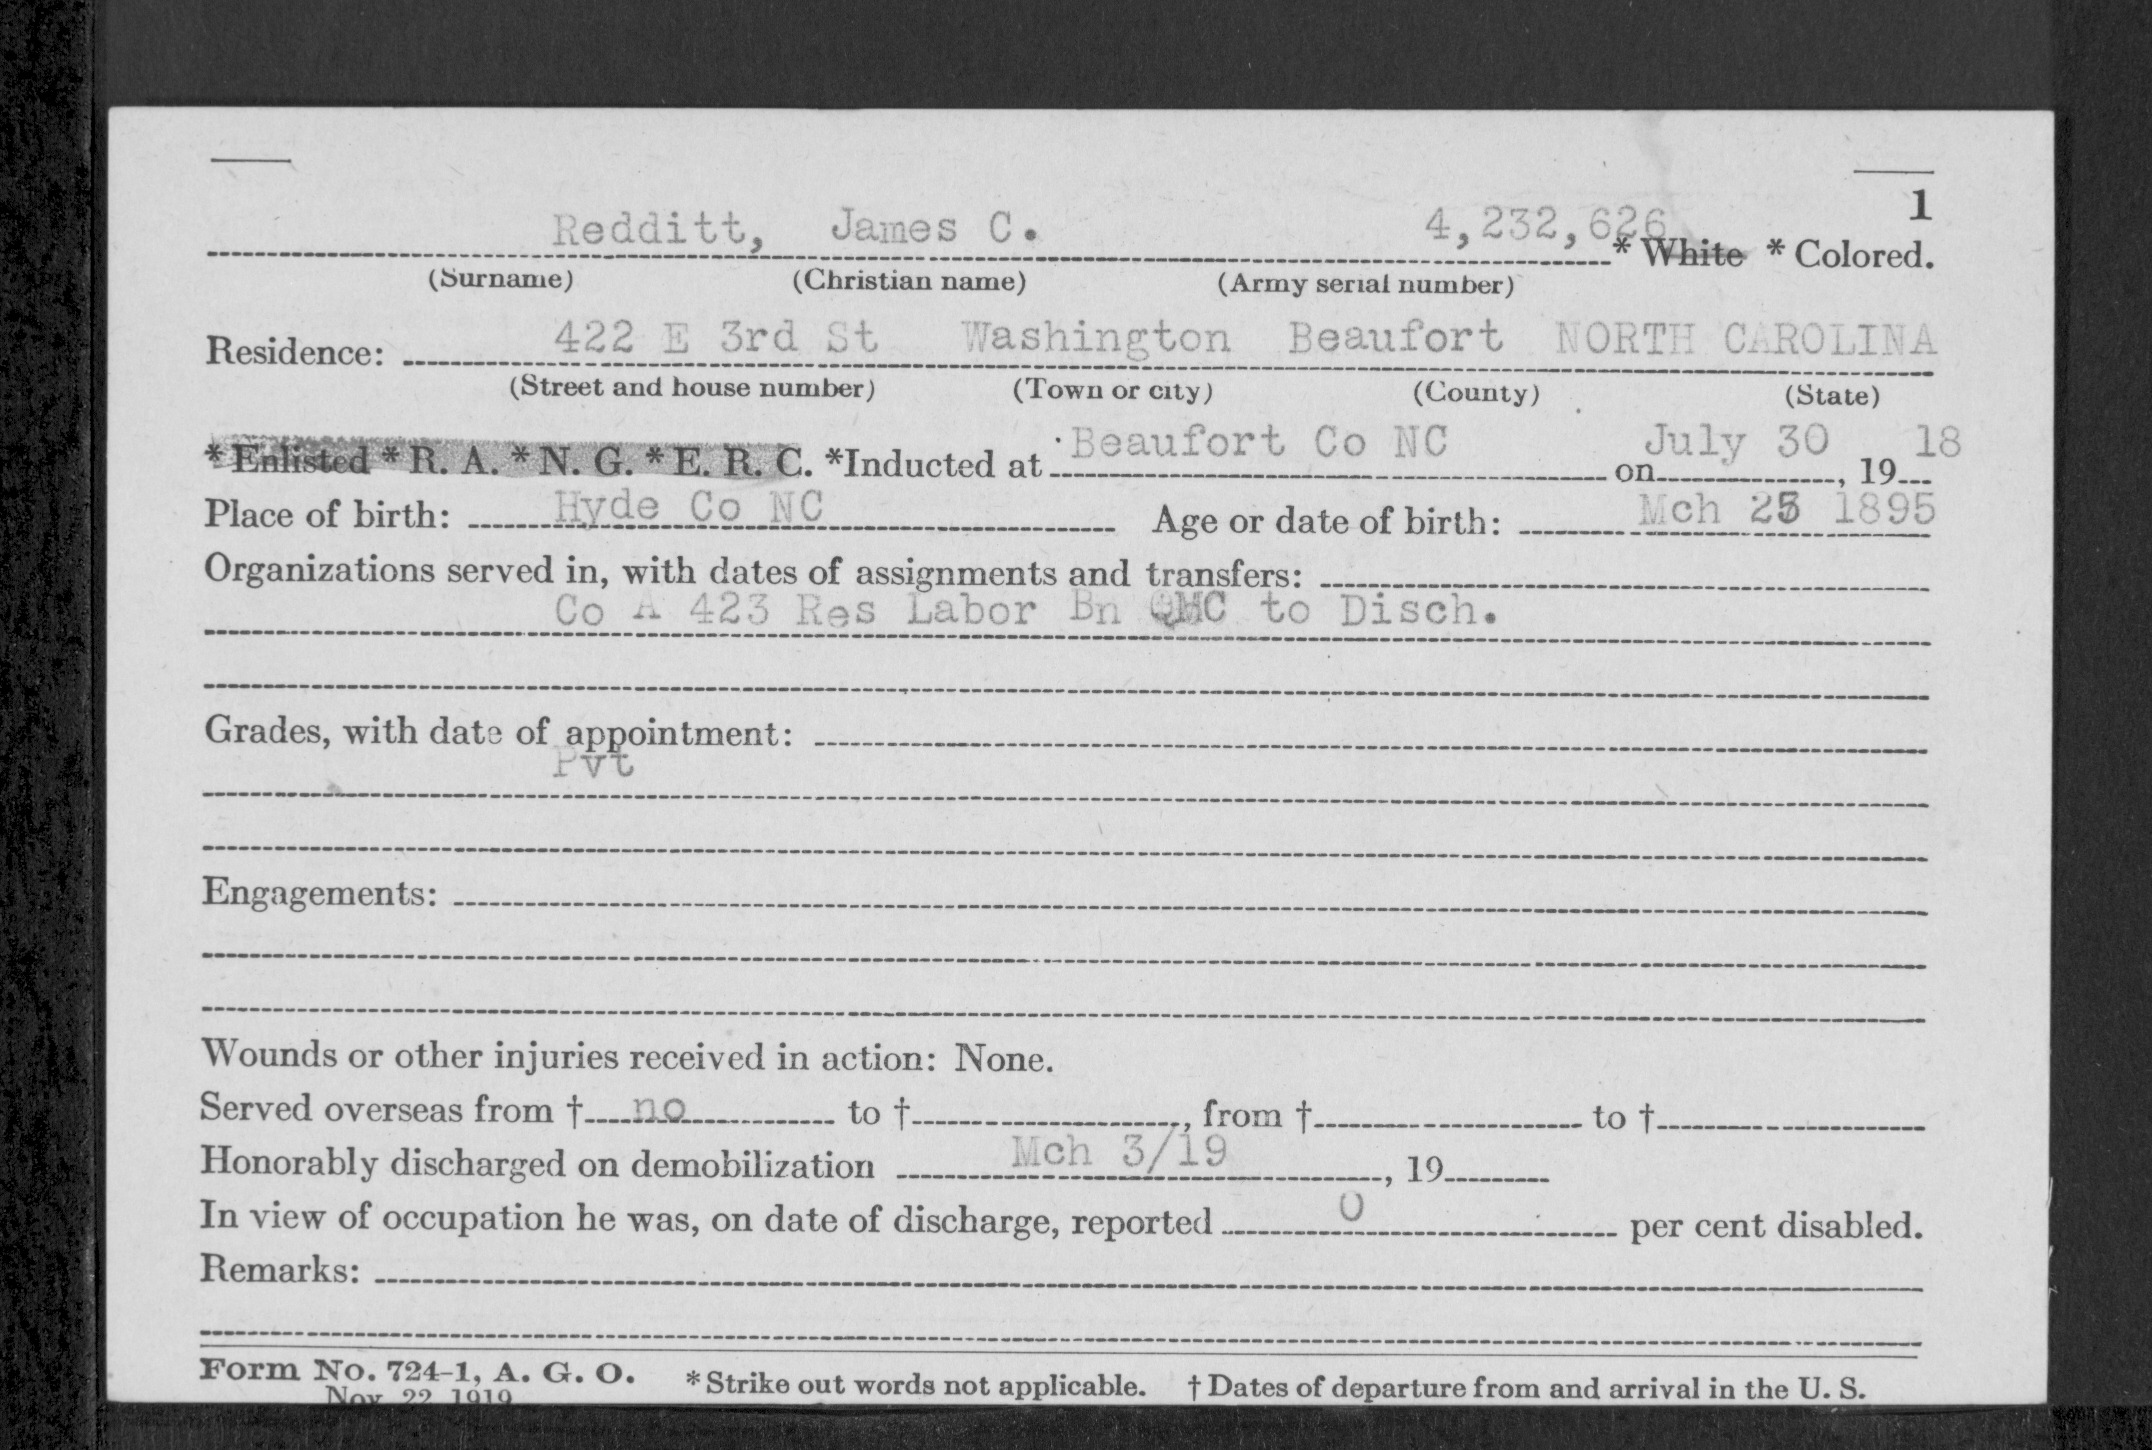 1
Redditt, James C. 4,232,626 * White * Colored.
(Surname) (Christian name) (Army serial number)
Residence: 422 E 3rd St Washington Beaufort NORTH CAROLINA
(Street and house number) (Town or city) (County) (State)
* Enlisted * R. A. * N. G. * E. R. C. *Inducted at Beaufort Co NC on July 30, 1918
Place of birth: Hyde Co NC Age or date of birth: Mch 1895
Organizations served in, with dates of assignments and transfers:
Co A 423 Res Labor Bn QMC to Disch.
Grades, with date of appointment:
Pvt
Engagements:
Wounds or other injuries received in action: None.
Served overseas from † no to †, from † to †
Honorably discharged on demobilization Mch 3/19, 19
In view of occupation he was, on date of discharge, reported 0 per cent disabled.
Remarks:
Form No. 724-1, A. G. O. * Strike out words not applicable. † Dates of departure from and arrival in the U. S.
Nov. 22 1919